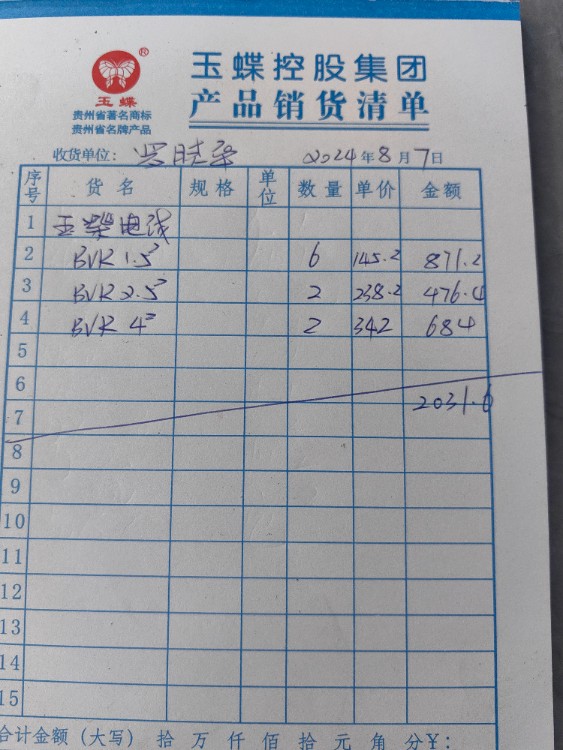 玉蝶控股集团
产品销货清单
®
玉蝶
贵州省著名商标
贵州省名牌产品
收货单位： 2024年8月7日
序号 货名 规格 单位 数量 单价 金额
1 玉蝶电线
2 BVR 1.5² 6 145.2 871.2
3 BVR 2.5² 2 238.2 476.4
4 BVR 4² 2 342 684
5
6 2031.6
7
8
9
10
11
12
13
14
15
合计金额（大写） 拾 万 仟 佰 拾 元 角 分￥：